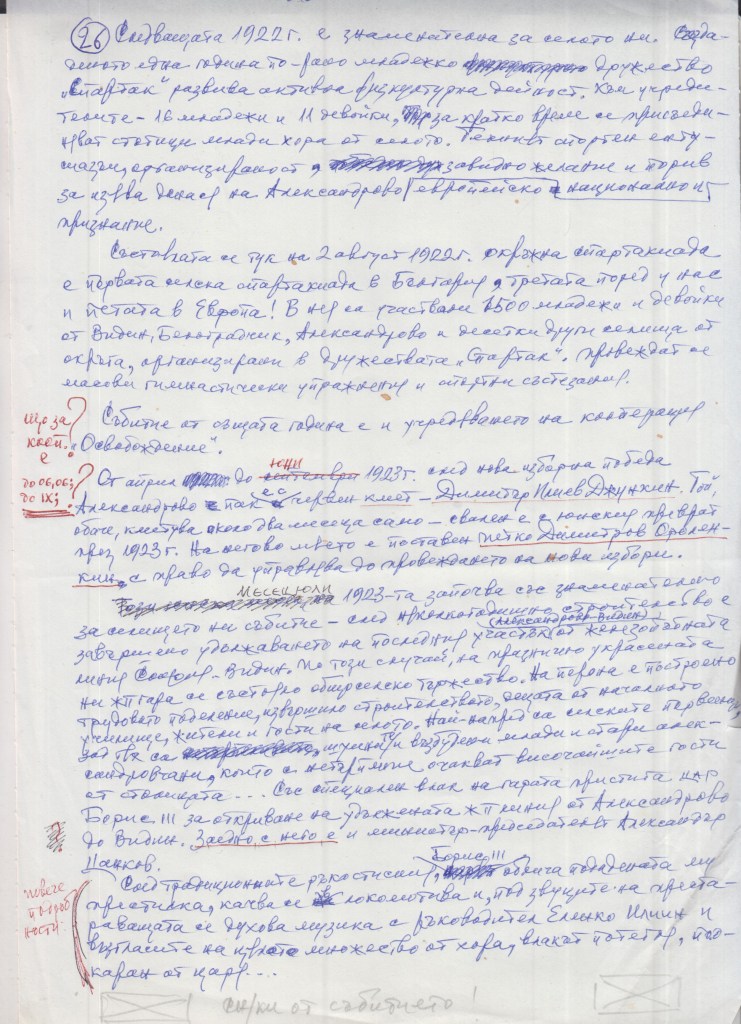 26 Следващата 1922 г. е знаменателна за селото ни. Създа-
деното една година по-рано младежко дружество
"Спартак" развива активна физкултурна дейност. Към учреди-
телите - 16 младежи и 11 девойки, за кратко време се присъеди-
няват стотици млади хора от селото. Техният спортен енту-
сиазъм, организираност, завидно желание и порив
за изява донася на Александрово европейско и национално
признание.
Състоялата се тук на 2 август 1922 г. окръжна спартакиада
е първата селска спартакиада в България, третата поред у нас
и петата в Европа! В нея са участвали 1500 младежи и девойки
от Видин, Белоградчик, Александрово и десетки други селища от
окръга, организирани в дружествата "Спартак". Провеждат се
масови гимнастически упражнения и спортни състезания.
Събитие от същата година е и учредяването на кооперация
"Освобождение".
що за
кооп.
е
?
От април до септември юни 1923 г. след нова изборна победа
до 06,06;
до IX;
?
Александрово пак е с червен кмет - Димитър Илиев Джунин. Той,
обаче, кметува около два месеца само - свален е с юнския преврат
през 1923 г. На негово място е поставен Петко Димитров
с право да управлява до провеждането на нови избори.
месец юли на 1923-та започва със знаменателно
за селището ни събитие - след няколкогодишно строителство е
завършено удължаването на последния участък (Александрово-Видин) от железопътната
линия София - Видин. По този случай, на празнично украсената
ни жп гара се състояло общоселско тържество. На перона е построено
трудовото поделение, извършило строителството, децата от началното
училище, жители и гости на селото. Най-напред са селските първенци,
зад тях са и възбудени млади и стари алек-
сандровчани, които с нетърпение очакват височайшите гости
от столицата ... Със специален влак на гарата пристига цар
Борис III за откриване на удължената жп линия от Александрово
до Видин. Заедно с него е и министър-председателят Александър
Цанков.
повече
подроб-
ности
След традиционните ръкостискания, Борис III облича подадената му
престилка, качва се в локомотива и, под звуците на
духова музика с ръководител Еленко Илиин и
възгласите на цялото множество от хора, влакът потегля,
каран от царя ...
снимки от събитието!